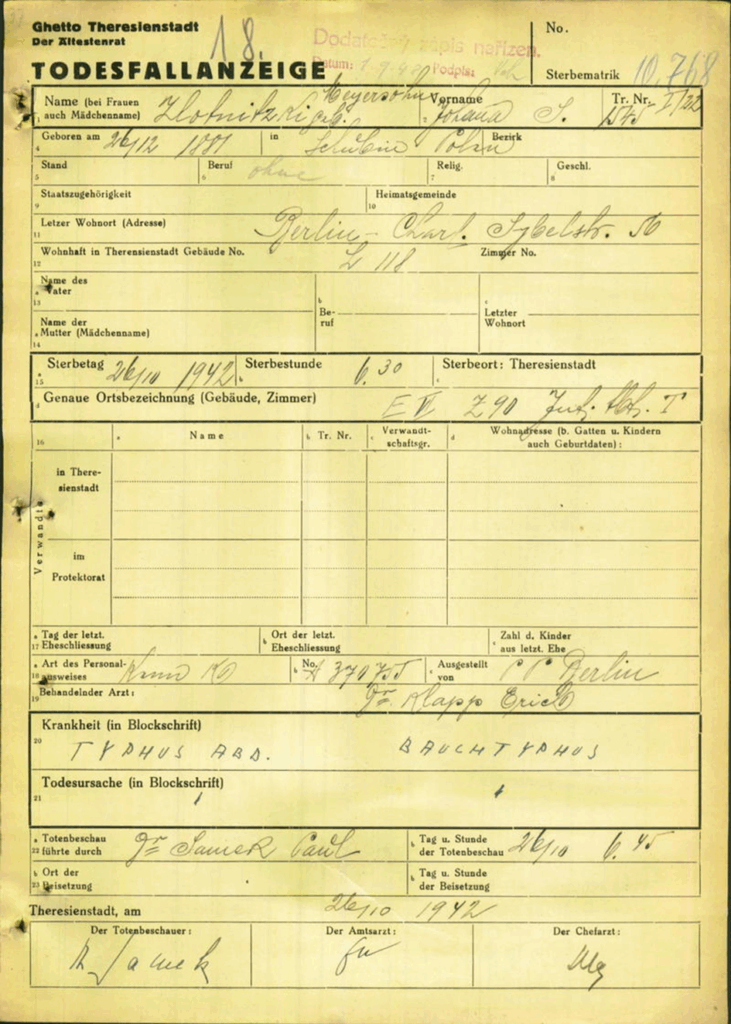 Ghetto Theresienstadt
Der Ältestenrat
18.
Dodatečný zápis nařízen.
Datum: Podpis:
No.
TODESFALLANZEIGE
Sterbematrik 10,768
Name (bei Frauen auch Mädchenname) Zlotnitzki geb. Meyersohn Vorname Johana S. Tr. Nr. 1545 I/22
1 2 3
4 Geboren am 26/12 1881 in Schubin Bezirk Polen
5 Stand 6 Beruf ohne 7 Relig. 8 Geschl.
9 Staatszugehörigkeit 10 Heimatsgemeinde
11 Letzer Wohnort (Adresse) Berlin - Charl. Sybelstr.
12 Wohnhaft in Therensienstadt Gebäude No. L 118 Zimmer No.
13 a Name des Vater
b Beruf
c Letzter Wohnort
14 a Name der Mutter (Mädchenname)
15 a Sterbetag 26/10 1942 b Sterbestunde 6.30 Sterbeort: Theresienstadt
d Genaue Ortsbezeichnung (Gebäude, Zimmer) E VI Z90
16 a Name b Tr. Nr. c Verwandtschaftsgr. d Wohnadresse (b. Gatten u. Kindern auch Geburtdaten):
Verwandte
in Theresienstadt
im Protektorat
17 a Tag der letzt. Eheschliessung b Ort der letzt. Eheschliessung c Zahl d. Kinder aus letzt. Ehe
18 a Art des Personalausweises Kenn K b No. A d Ausgestellt von PP Berlin
19 Behandelnder Arzt: Dr Klapp Erich
Krankheit (in Blockschrift)
20 TYPHUS ABD. BAUCHTYPHUS
Todesursache (in Blockschrift)
21
22 a Totenbeschau führte durch Dr Samek Paul b Tag u. Stunde der Totenbeschau 26/10 6.45
23 a Ort der Beisetzung b Tag u. Stunde der Beisetzung
Theresienstadt, am 26/10 1942
Der Totenbeschauer: Der Amtsarzt: Der Chefarzt:
Samek